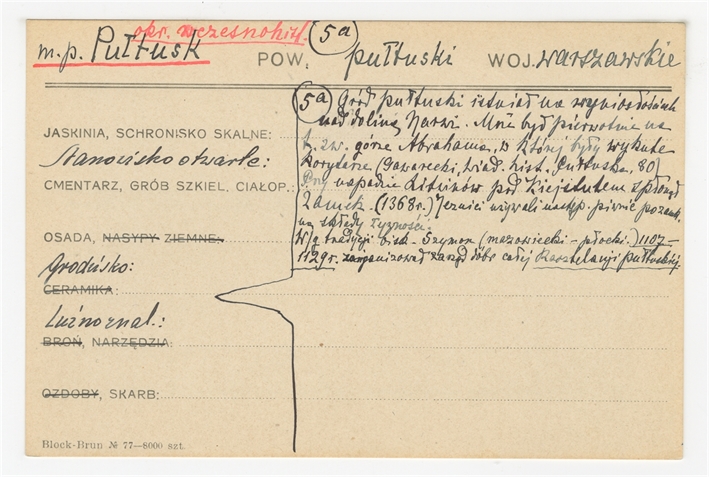 okr. wczesnohist.
m.p. Pułtusk POW. (5a) pułtuski WOJ. warszawskie
(5a) Gród pułtuski istniał na wyniosłościach
nad doliną Narwi. Mniej był pierwotnie na
JASKINIA, SCHRONISKO SKALNE:
t. zw. górze Abrahama, w której były wykute
Stanowisko otwarte:
korytarze (Gawarecki, Wiad. hist. Pułtuska, 80)
CMENTARZ, GRÓB SZKIEL, CIAŁOP.:
Przy napadzie Litwinów pod Kiejstutem spłonął
zamek (1368r.) Jeńcy używali następ. piwnic pozamk.
na składy żywności.
OSADA, NASYPY ZIEMNE:
W/g tradycji bisk. Szymon (mazowiecki-płocki) 1107-
1129r. zorganizował zarząd dóbr całej Kasztelanji pułtuskiej.
Grodzisko:
CERAMIKA:
Luźno znal.:
BROŃ, NARZĘDZIA:
OZDOBY, SKARB:
Block-Brun № 77—8000 szt.